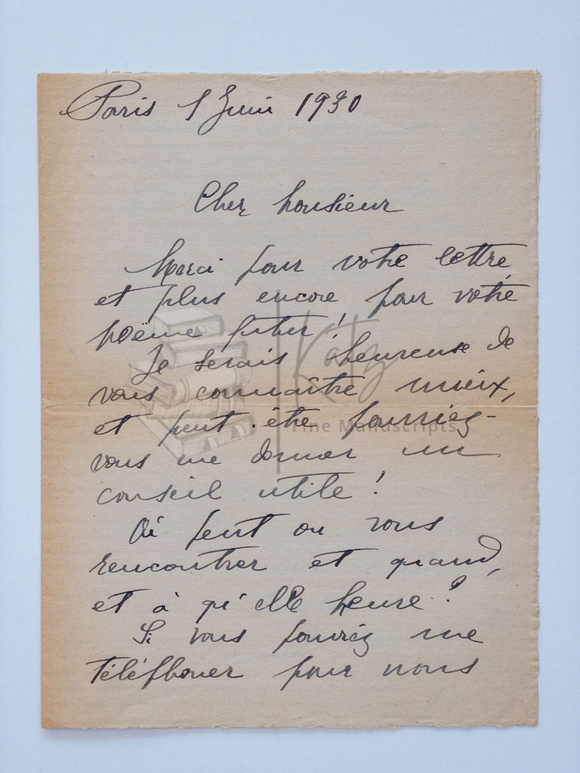 Paris 1 Juin 1930
Cher Monsieur
Merci pour votre lettre
et plus encore pour votre
poëme futur!
Je serais heureuse de
vous connaître mieux,
et peut-être pourriez-
vous me donner un
conseil utile!
Où peut on vous
rencontrer et quand,
et à qu'elle heure?
Si vous pouviez me
téléphoner pour nous
Katz
Fine Manuscripts